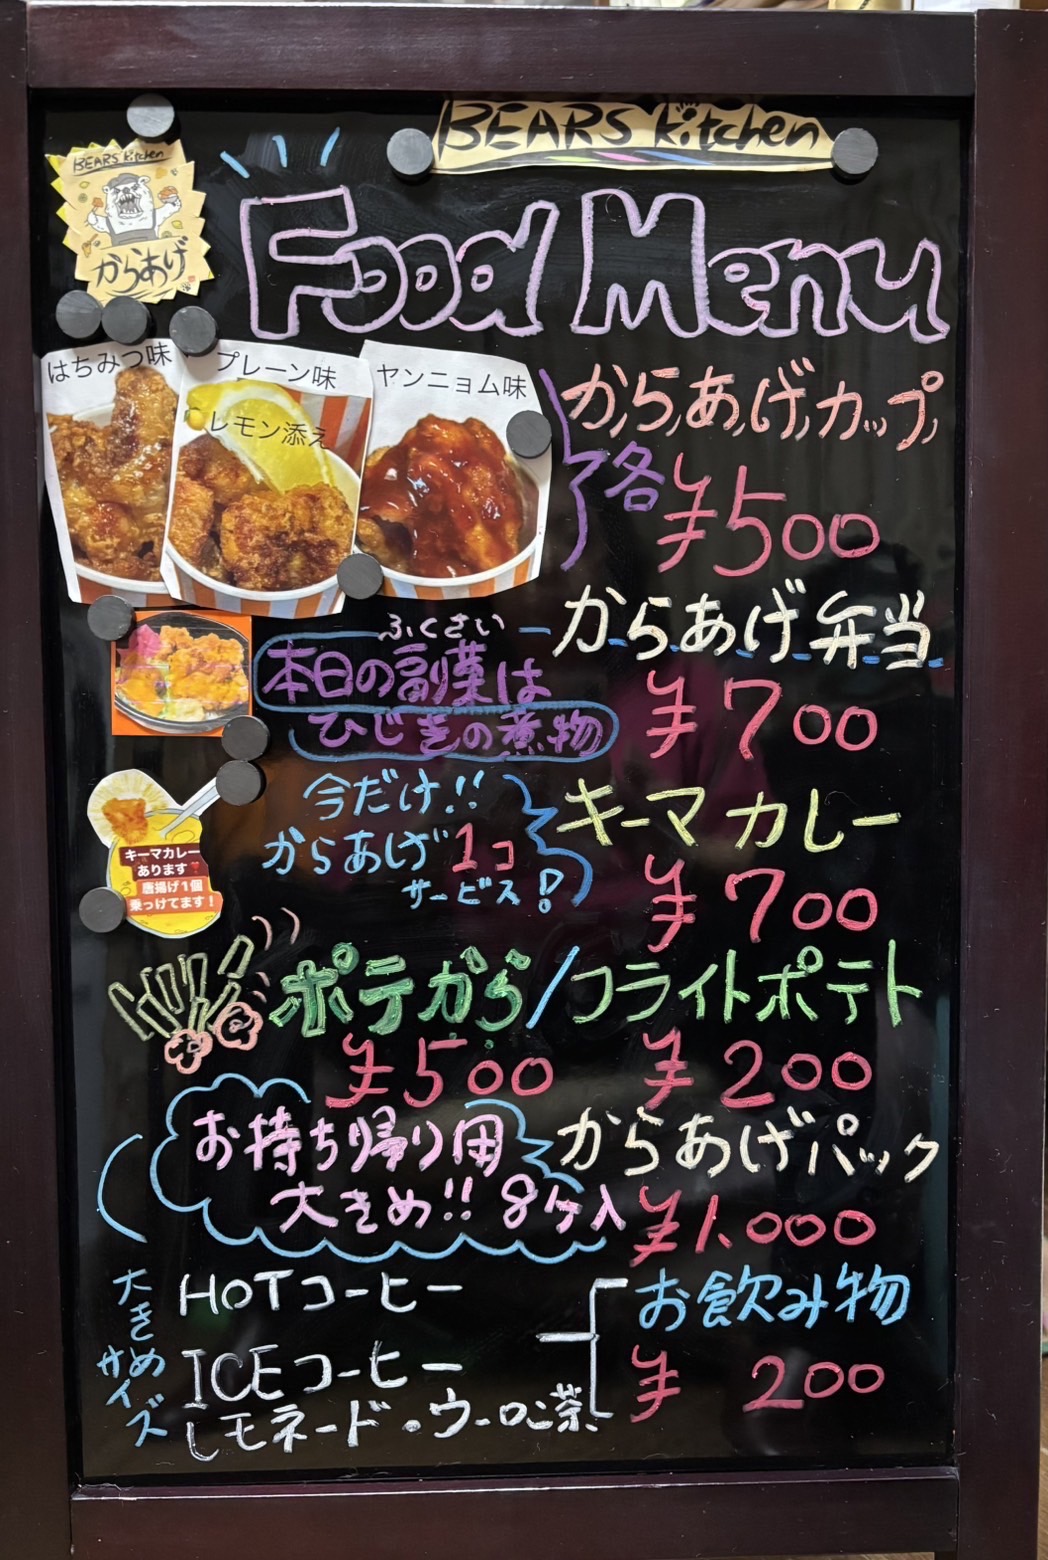 BEARS Kitchen
BEARS Kitchen
からあげ
Food Menu
はちみつ味
プレーン味
レモン添え
ヤンニョム味
からあげカップ
各 ¥500
からあげ弁当
¥700
ふくさい
本日の副菜は
ひじきの煮物
キーマカレー
¥700
今だけ!!
からあげ1コ
サービス!
キーマカレー
あります
唐揚げ1個
乗っけてます!
ポテから/フライトポテト
¥500 ¥200
からあげパック
¥1.000
お持ち帰り用
大きめ!! 8ヶ入
お飲み物
¥200
大きめサイズ
HOTコーヒー
ICEコーヒー
レモネード・ウーロン茶